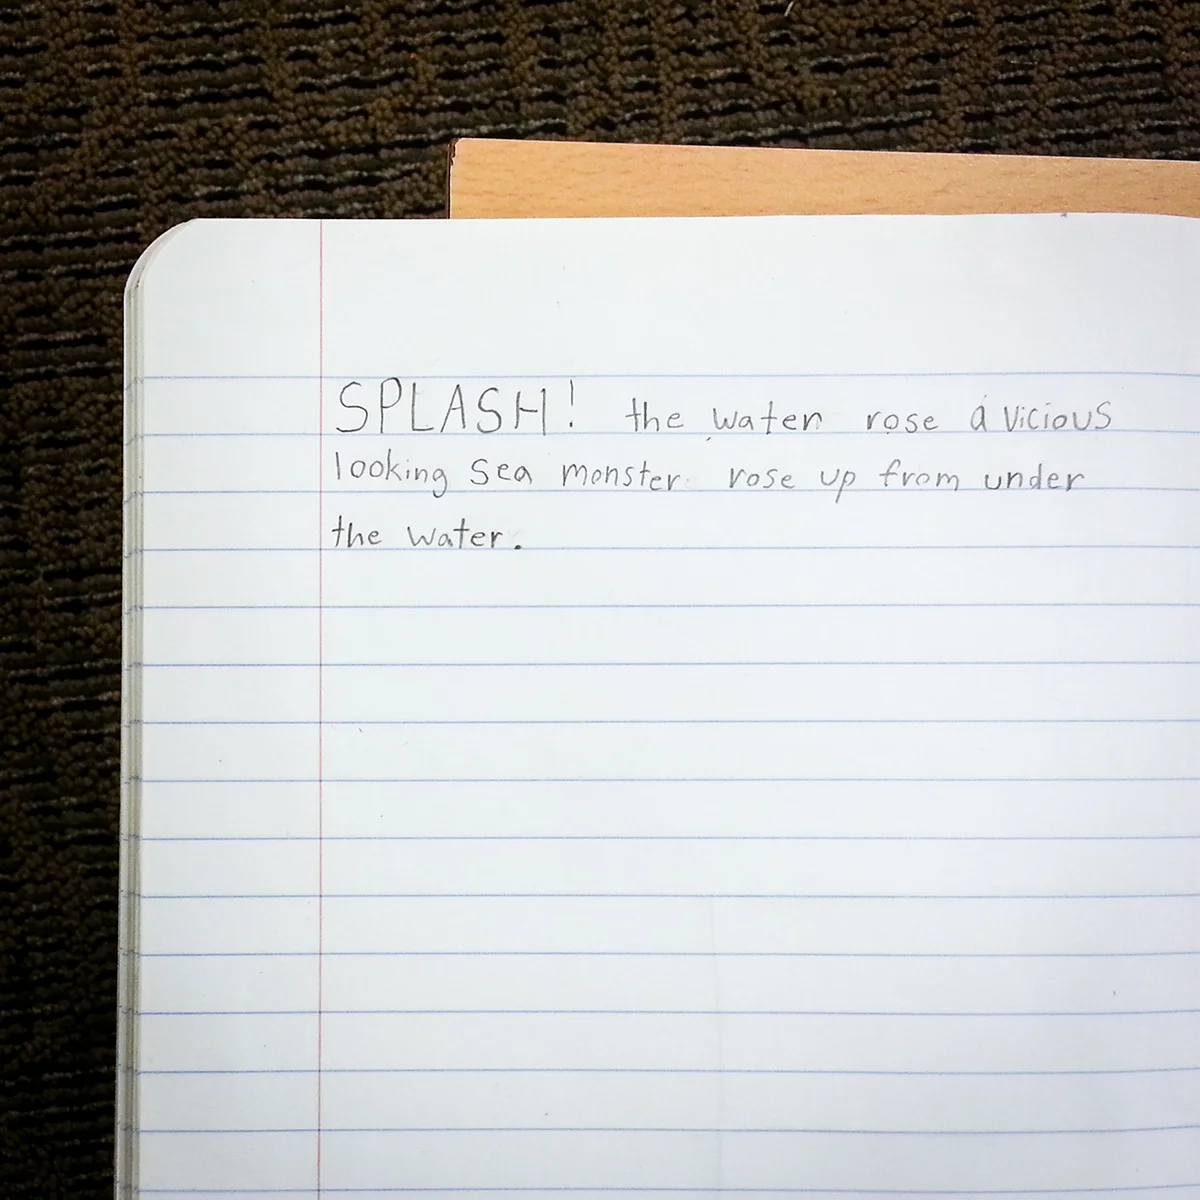 SPLASH! the water rose a vicious
looking sea monster rose up from under
the water.